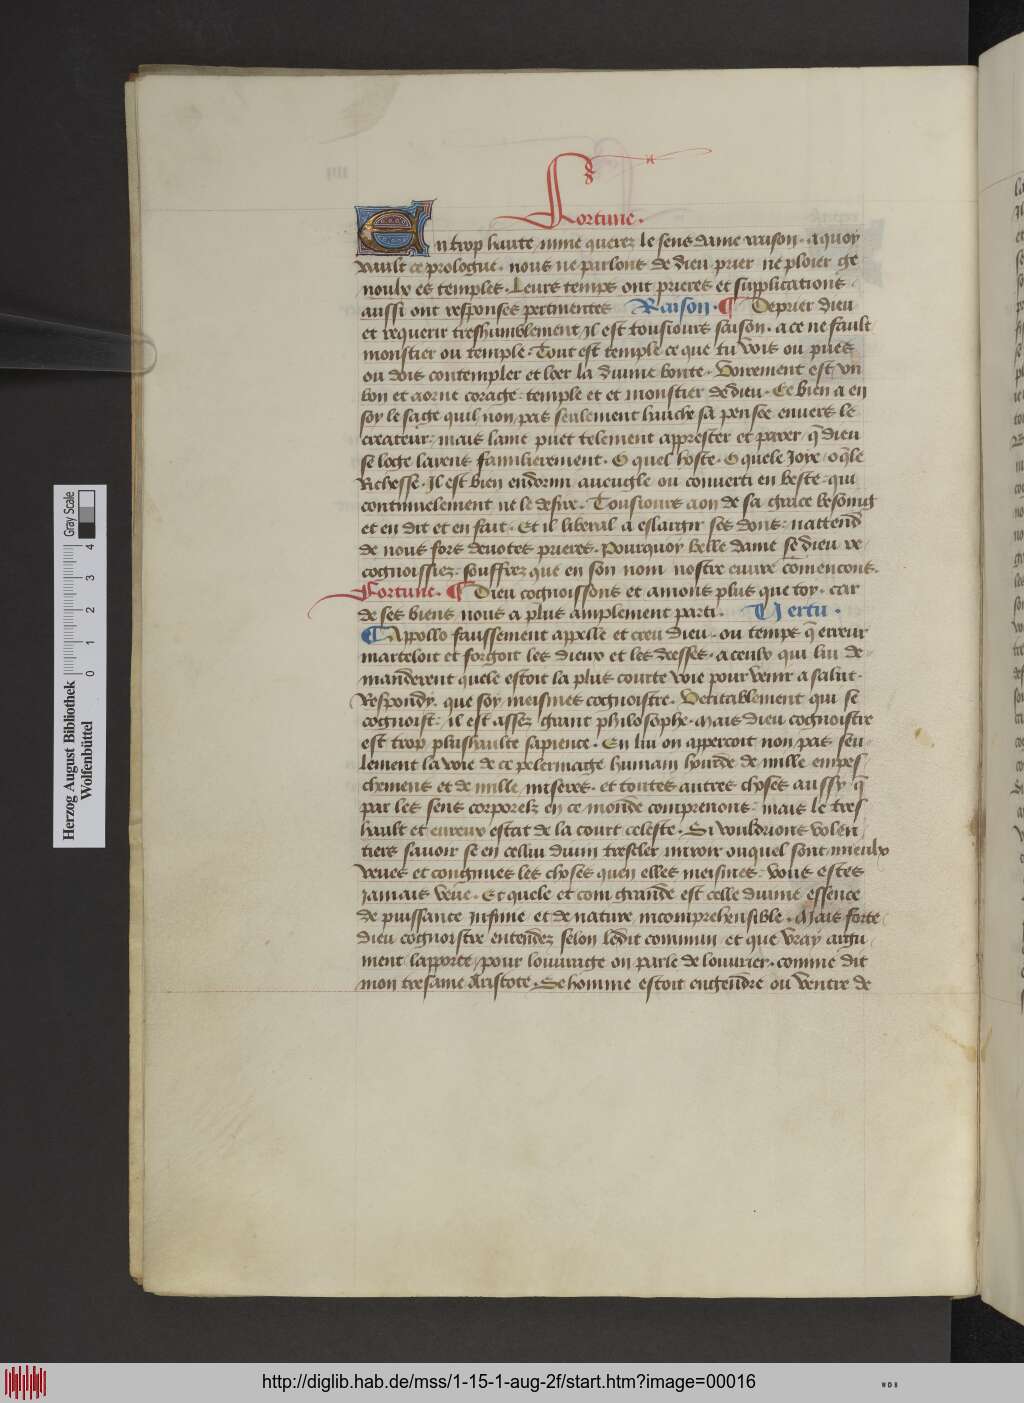 Fortune.
En trop haulte mine querez le sens dame raison. A quoy
vault ce prologue. nous ne parlons de dieu prier ne ploier ge
noulx es temples. Leurs temps ont prieres et supplications
aussi ont responses pertinentes Raison. ¶ De prier dieu
et requerir treshumblement Il est tousiours saison. a ce ne fault
monstier ou temple. Tout est temple ce que tu vois ou pues
ou dois contempler et loer la diuine bonte. Voirement est vn
bon et aorne corage temple et et monstier de dieu. Ce bien a en
soy le sage quil non pas seulement huiche sa pensee enuers le
createur mais lame puet telement apprester et parer q̄ dieu
se loge leans familierement. O quel hoste. O quele Joye. o q̄le
Richesse. Il est bien endormi aueugle ou conuerti en beste qui
continuelement ne le desire. Tousiours a on de sa grace besoing
et en dit et en fait. Et il liberal a eslargir ses dons nattend
de nous fors deuotes prieres. Pourquoy belle dame se dieu re
cognoissiez. souffrez que en son nom nostre euure comencons.
Fortune. ¶ Dieu cognoissons et amons plus que toy. car
de ses biens nous a plus amplement parti. Vertu.
¶ Appollo faussement appelle et creu dieu. ou temps q̄ erreur
marteloit et forgoit les dieux et les deesses. a ceulx qui lui de
manderent quele estoit la plus courte voie pour venir a salut.
Respondy. que soy meismes cognoistre. Veritablement qui se
cognoist. il est assez grant philosophe. Mais dieu cognoistre
est trop plushaulte sapience. En lui on appercoit non pas seu
lement la voie de ce pelerinage humain hourde de mille empes
chemens et de mille miseres. et toutes autres choses aussy q̄
par les sens corporelz en ce monde comprenons. mais le tres
hault et eureux estat de la court celeste. Si vouldrions volen
tiers sauoir se en cellui diuin trescler miroir ouquel sont mieulx
veues et congnues les choses quen elles meismes. vous estes
Jamais veue. Et quele et com grande est celle diuine essence
de puissance infinie et de nature incomprehensible. Mais forte
dieu cognoistre entendez selon ledit commun et que vray argu
ment lapporte. pour louurage on parle de louurier. comme dit
mon tresame Aristote. Se homme estoit engendre ou ventre de
Herzog August Bibliothek
Wolfenbüttel
0 1 2 3 4
Gray Scale
http://diglib.hab.de/mss/1-15-1-aug-2f/start.htm?image=00016
WDB